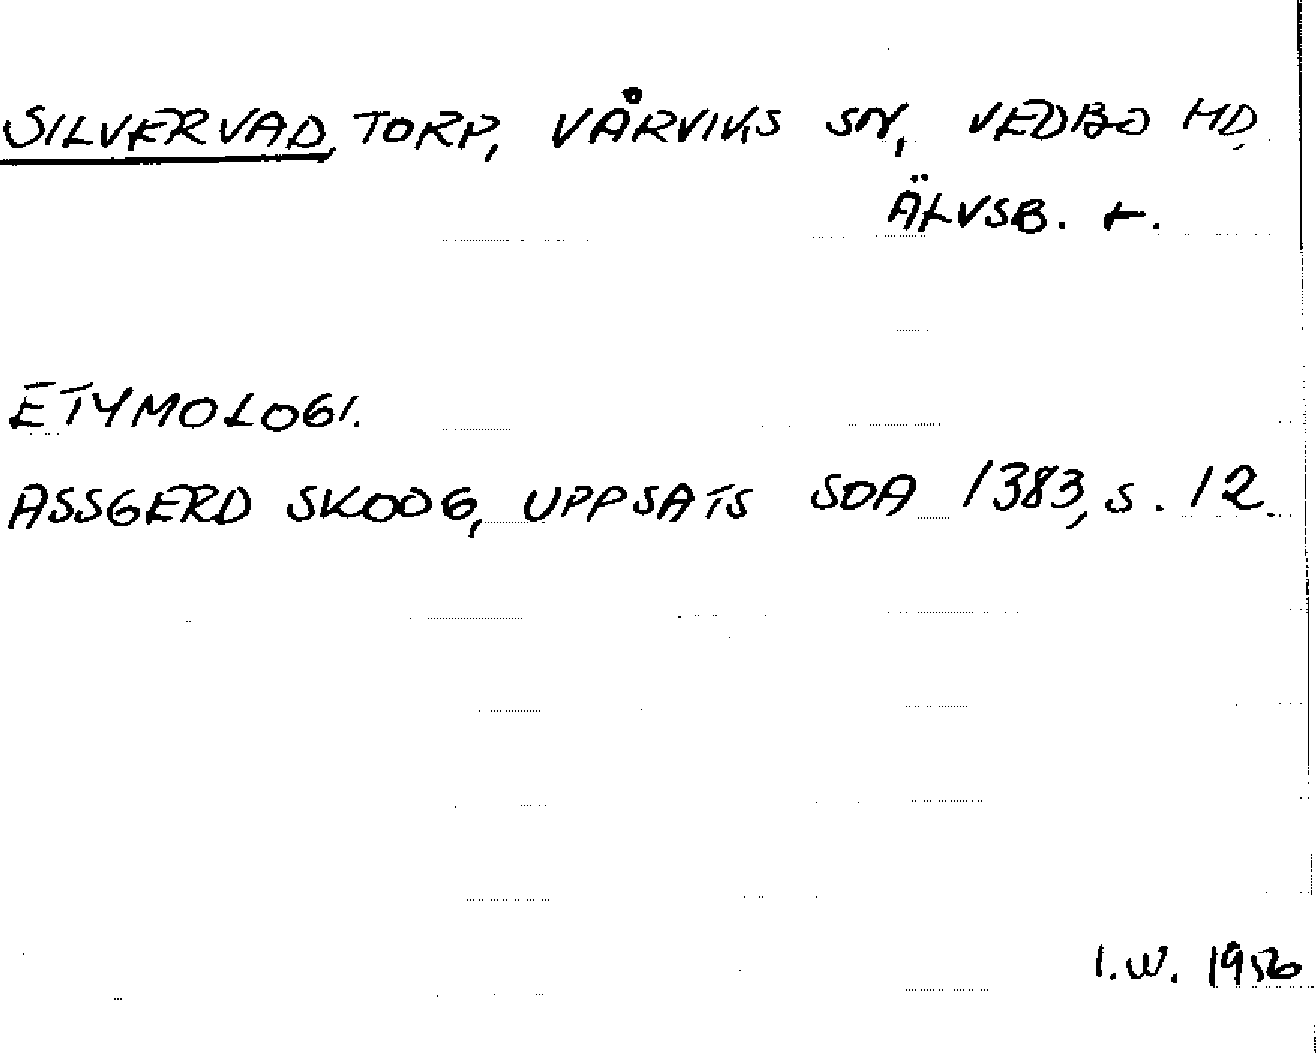 SILVERVAD, TORP, VÅRVIKS SN, VEDBO HD,
ÄLVSB. L.
ETYMOLOGI.
ASSGERD SKOOG, UPPSATS SOA 1383, S. 12.
I.W. 1956